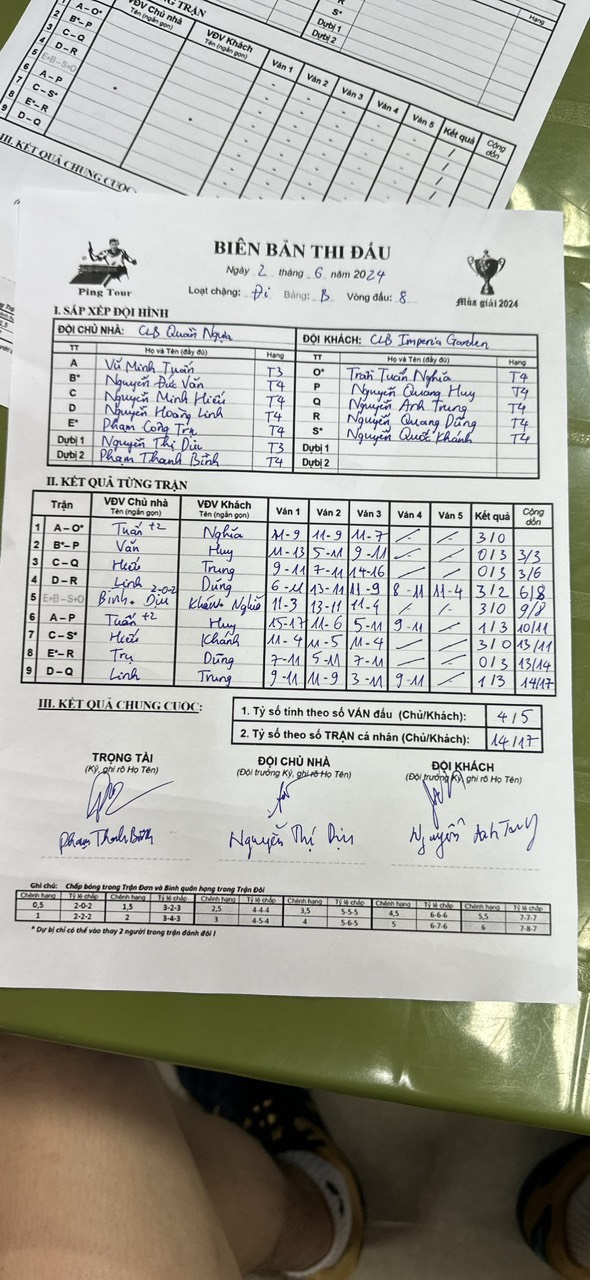 A – O*
B*– P
C – Q
D – R
E+B – S+O
A – P
C – S*
E*– R
D – Q
VĐV Chủ nhà
Tên (ngắn gọn)
VĐV Khách
Tên (ngắn gọn)
Ván 1 Ván 2 Ván 3 Ván 4 Ván 5 Kết quả Cộng dồn
S*
Dự bị 1
Dự bị 2
Hạng
III. KẾT QUẢ CHUNG CUỘC
BIÊN BẢN THI ĐẤU
Ngày 2 tháng 6 năm 2024
Loạt chặng: Đi Bảng: B Vòng đấu: 8
Ping Tour
Mùa giải 2024
I. SẮP XẾP ĐỘI HÌNH
ĐỘI CHỦ NHÀ: CLB Quần Ngựa ĐỘI KHÁCH: CLB Imperia Garden
TT Họ và Tên (đầy đủ) Hạng TT Họ và Tên (đầy đủ) Hạng
A Vũ Minh Tuấn T3 O* Trần Tuấn Nghĩa T4
B* Nguyễn Đức Văn T4 P Nguyễn Quang Huy T4
C Nguyễn Minh Hiếu T4 Q Nguyễn Anh Trung T4
D Nguyễn Hoàng Linh T4 R Nguyễn Quang Dũng T4
E* Phạm Công Trụ T4 S* Nguyễn Quốc Khánh T4
Dự bị 1 Nguyễn Thị Dịu T3 Dự bị 1
Dự bị 2 Phạm Thanh Bình T4 Dự bị 2
II. KẾT QUẢ TỪNG TRẬN
Trận VĐV Chủ nhà VĐV Khách Ván 1 Ván 2 Ván 3 Ván 4 Ván 5 Kết quả Cộng dồn
Tên (ngắn gọn) Tên (ngắn gọn)
1 A – O* Tuấn +2 Nghĩa 11-9 11-9 11-7 3/0
2 B*– P Văn Huy 11-13 5-11 9-11 0/3 3/3
3 C – Q Hiếu Trung 9-11 7-11 14-16 0/3 3/6
4 D – R Linh Dũng 6-11 13-11 11-9 8-11 11-4 3/2 6/8
5 E+B – S+O Bình + Dịu 2-0-2 Khánh + Nghĩa 11-3 13-11 11-4 3/0 9/8
6 A – P Tuấn +2 Huy 15-17 11-6 5-11 9-11 1/3 10/11
7 C – S* Hiếu Khánh 11-4 11-5 11-4 3/0 13/11
8 E*– R Trụ Dũng 7-11 5-11 7-11 0/3 13/14
9 D – Q Linh Trung 9-11 11-9 3-11 9-11 1/3 14/17
III. KẾT QUẢ CHUNG CUỘC:
1. Tỷ số tính theo số VÁN đấu (Chủ/Khách): 4/5
2. Tỷ số theo số TRẬN cá nhân (Chủ/Khách): 14/17
TRỌNG TÀI ĐỘI CHỦ NHÀ ĐỘI KHÁCH
(Ký, ghi rõ Họ Tên) (Đội trưởng Ký, ghi rõ Họ Tên) (Đội trưởng Ký, ghi rõ Họ Tên)
Phạm Thanh Bình Nguyễn Thị Dịu Nguyễn Anh Trung
Ghi chú: Chấp bóng trong Trận Đơn và Bình quân hạng trong Trận Đôi
Chênh hạng Tỷ lệ chấp Chênh hạng Tỷ lệ chấp Chênh hạng Tỷ lệ chấp Chênh hạng Tỷ lệ chấp Chênh hạng Tỷ lệ chấp Chênh hạng Tỷ lệ chấp
0,5 2-0-2 1,5 3-2-3 2,5 4-4-4 3,5 5-5-5 4,5 6-6-6 5,5 7-7-7
1 2-2-2 2 3-4-3 3 4-5-4 4 5-6-5 5 6-7-6 6 7-8-7
* Dự bị chỉ có thể vào thay 2 người trong trận đánh đôi !